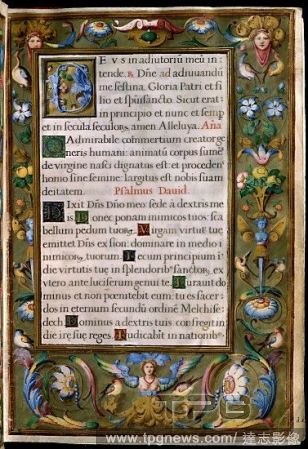 Deus in adiutoriũ meũ in
tende. Dñe ad adiuuandũ
me festina. Gloria Patri et fi
lio et sp̃uisancto. Sicut erat
in principio et nunc et semp
et in secula seculoꝝ, amen Alleluya. Aña
Admirabile commertium creator ge
neris humani animatũ corpus sume
de virgine nasci dignatus est: et proceden
homo sine semine largitus est nobis suam
deitatem. Psalmus Dauid.
Dixit Dñs Dño meo sede á dextris me
is. Donec ponam inimicos tuos sca
bellum pedum tuoꝝ. Virgam virtut̃ tue
emittet Dñs ex sion: dominare in medio i
nimicoꝝ tuorum. Tecum principium i
die virtutis tue in splendorib' sanctoꝝ ex
vtero ante luciferum genui te. Iurauit do
minus et non penitebit eum: tu es sacer
dos in eternum secundũ ordinẽ Melchise
dech. Dominus a dextris tuis confregit in
die irę suę reges. Iudicabit in nationib'
TPG
www.tpgnews.com/ 達志影像